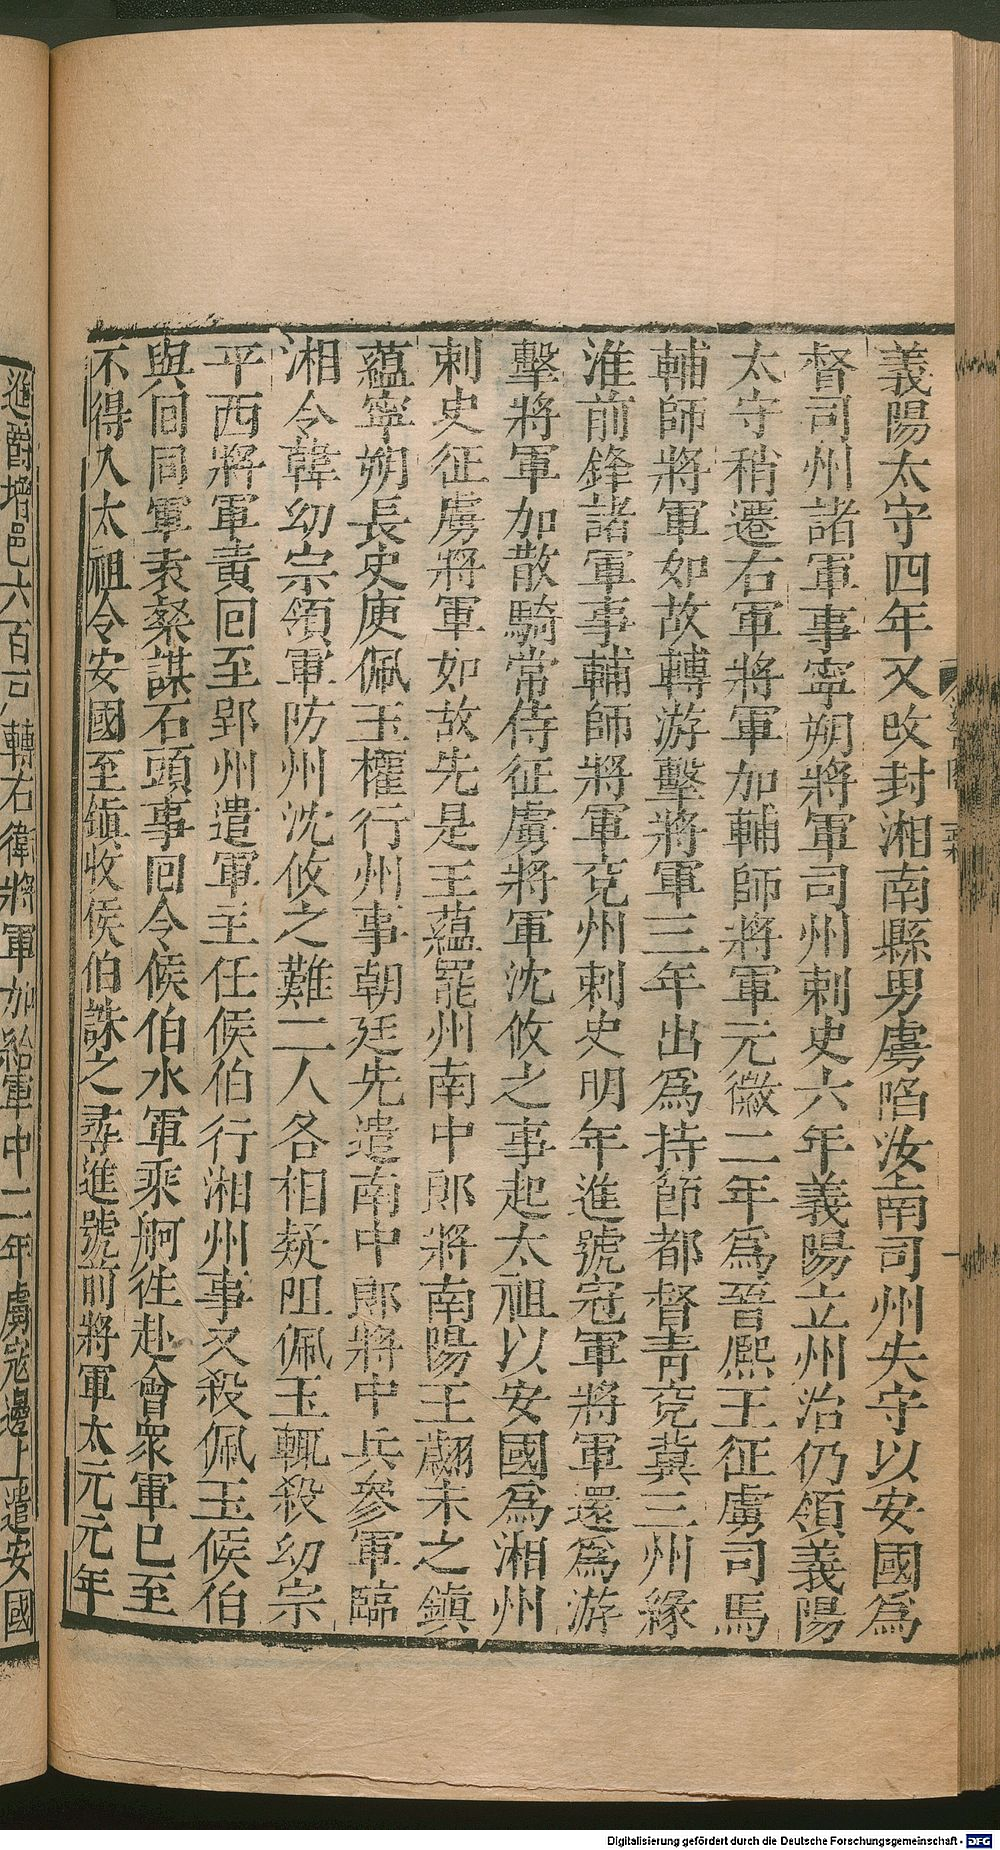 義陽太守四年又改封湘南縣男虜陷汝南司州失守以安國爲
督司州諸軍事寧朔將軍司州刺史六年義陽立州治仍領義陽
太守稍遷右軍將軍加輔師將軍元徽二年爲晉熙王征虜司馬
輔師將軍如故轉游擊將軍三年出爲持節都督青兗冀三州緣
淮前鋒諸軍事輔師將軍兗州刺史明年進號冠軍將軍還爲游
擊將軍加散騎常侍征虜將軍沈攸之事起太祖以安國爲湘州
刺史征虜將軍如故先是王蘊罷州南中郎將南陽王翽未之鎮
蘊寧朔長史庾佩玉權行州事朝廷先遣南中郎將中兵參軍臨
湘令韓幼宗領軍防州沈攸之難二人各相疑阻佩玉輒殺幼宗
平西將軍黃回至郢州遣軍主任候伯行湘州事又殺佩玉候伯
與回同軍袁粲謀石頭事回令候伯水軍乘舸往赴會衆軍已至
不得入太祖令安國至鎮收侯伯誅之尋進號前將軍太元元年
進爵增邑六百戶轉右衛將軍加給軍中二年虜寇邊上遣安國
Digitalisierung gefördert durch die Deutsche Forschungsgemeinschaft - DFG